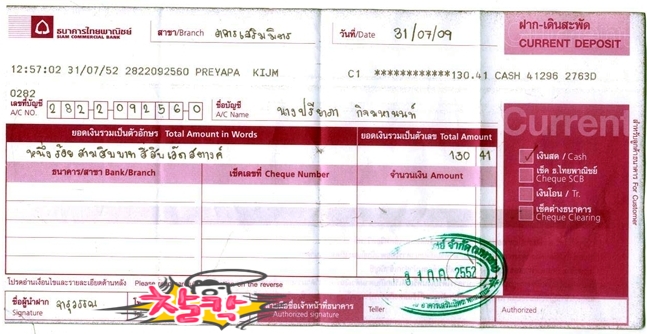 ธนาคารไทยพาณิชย์
SIAM COMMERCIAL BANK
สาขา/Branch
วันที่/Date 31/07/09
ฝาก-เดินสะพัด
CURRENT DEPOSIT
12:57:02 31/07/52 2822092560 PREYAPA KIJM C1 ************130.41 CASH 41296 2763D
0282
เลขที่บัญชี
A/C NO. 282-2-09256-0
ชื่อบัญชี
A/C Name นางปรียาภา
Current
ยอดเงินรวมเป็นตัวอักษร Total Amount in Words
ยอดเงินรวมเป็นตัวเลข Total Amount
หนึ่งร้อยสามสิบบาทสี่สิบเอ็ดสตางค์
130 41
ธนาคาร/สาขา Bank/Branch
เช็คเลขที่ Cheque Number
จำนวนเงิน Amount
เงินสด / Cash
เช็ค ธ.ไทยพาณิชย์
Cheque SCB
เงินโอน / Tr.
เช็คต่างธนาคาร
Cheque Clearing
สำหรับลูกค้าธนาคาร For Customer
31 ก.ค. 2552
โปรดอ่านเงื่อนไขและรายละเอียดด้านหลัง Please
on the reverse
ชื่อผู้นำฝาก
Signature
찰칵
ลายมือชื่อเจ้าหน้าที่ธนาคาร
Authorized signature
Teller
Authorized